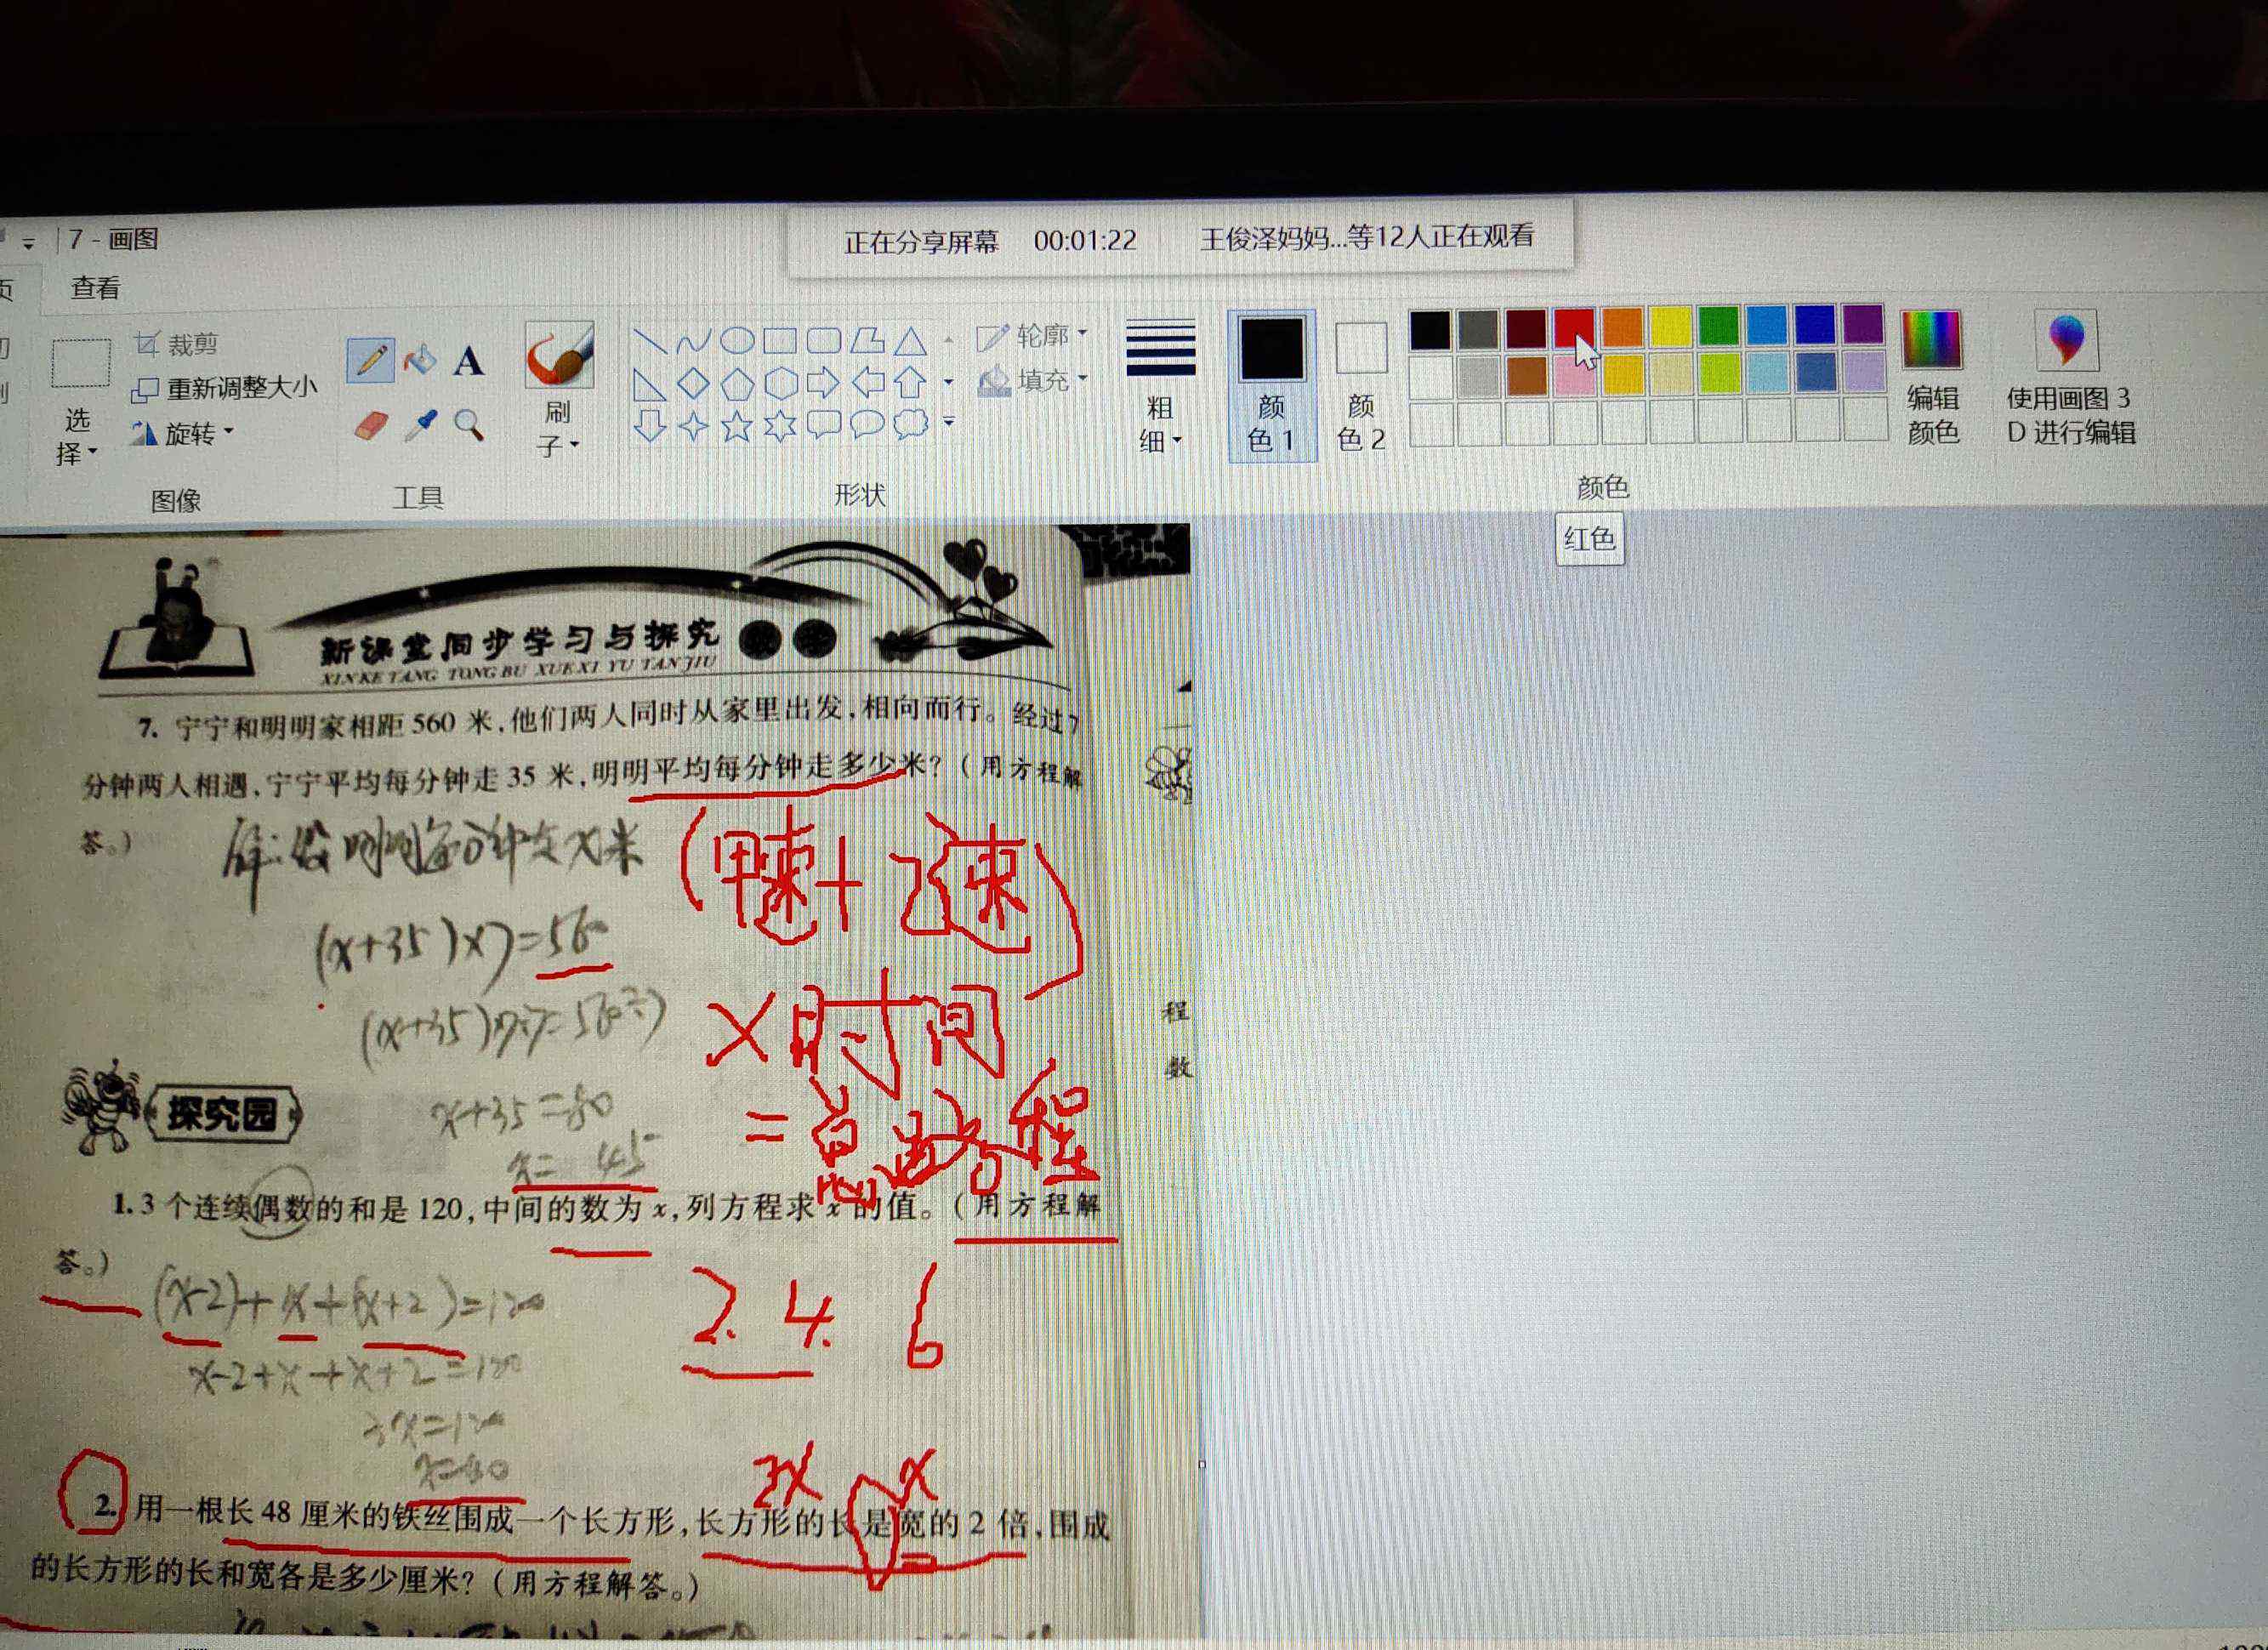 7 - 画图
正在分享屏幕 00:01:22 王俊泽妈妈...等12人正在观看
查看
选择
裁剪
重新调整大小
旋转
图像
A
工具
刷子
轮廓
填充
形状
粗细
颜色1
颜色2
编辑颜色
使用画图 3D 进行编辑
颜色
红色
新课堂同步学习与探究
XIN KE TANG TONG BU XUE XI YU TAN JIU
7. 宁宁和明明家相距 560 米,他们两人同时从家里出发,相向而行。经过7
分钟两人相遇,宁宁平均每分钟走 35 米,明明平均每分钟走多少米?(用方程解
答。)
解:设明明每分钟走x米
(甲速+乙速)
(x+35)×7=560
×时间
(x+35)×7÷7=560÷7
=总路程
x+35=80
x=45
程
数
探究园
1. 3 个连续偶数的和是 120,中间的数为 x,列方程求 x 的值。(用方程解
答。)
(x-2)+x+(x+2)=120
2. 4. 6
x-2+x+x+2=120
3x=120
x=40
2x x
2. 用一根长 48 厘米的铁丝围成一个长方形,长方形的长是宽的 2 倍,围成
的长方形的长和宽各是多少厘米?(用方程解答。)